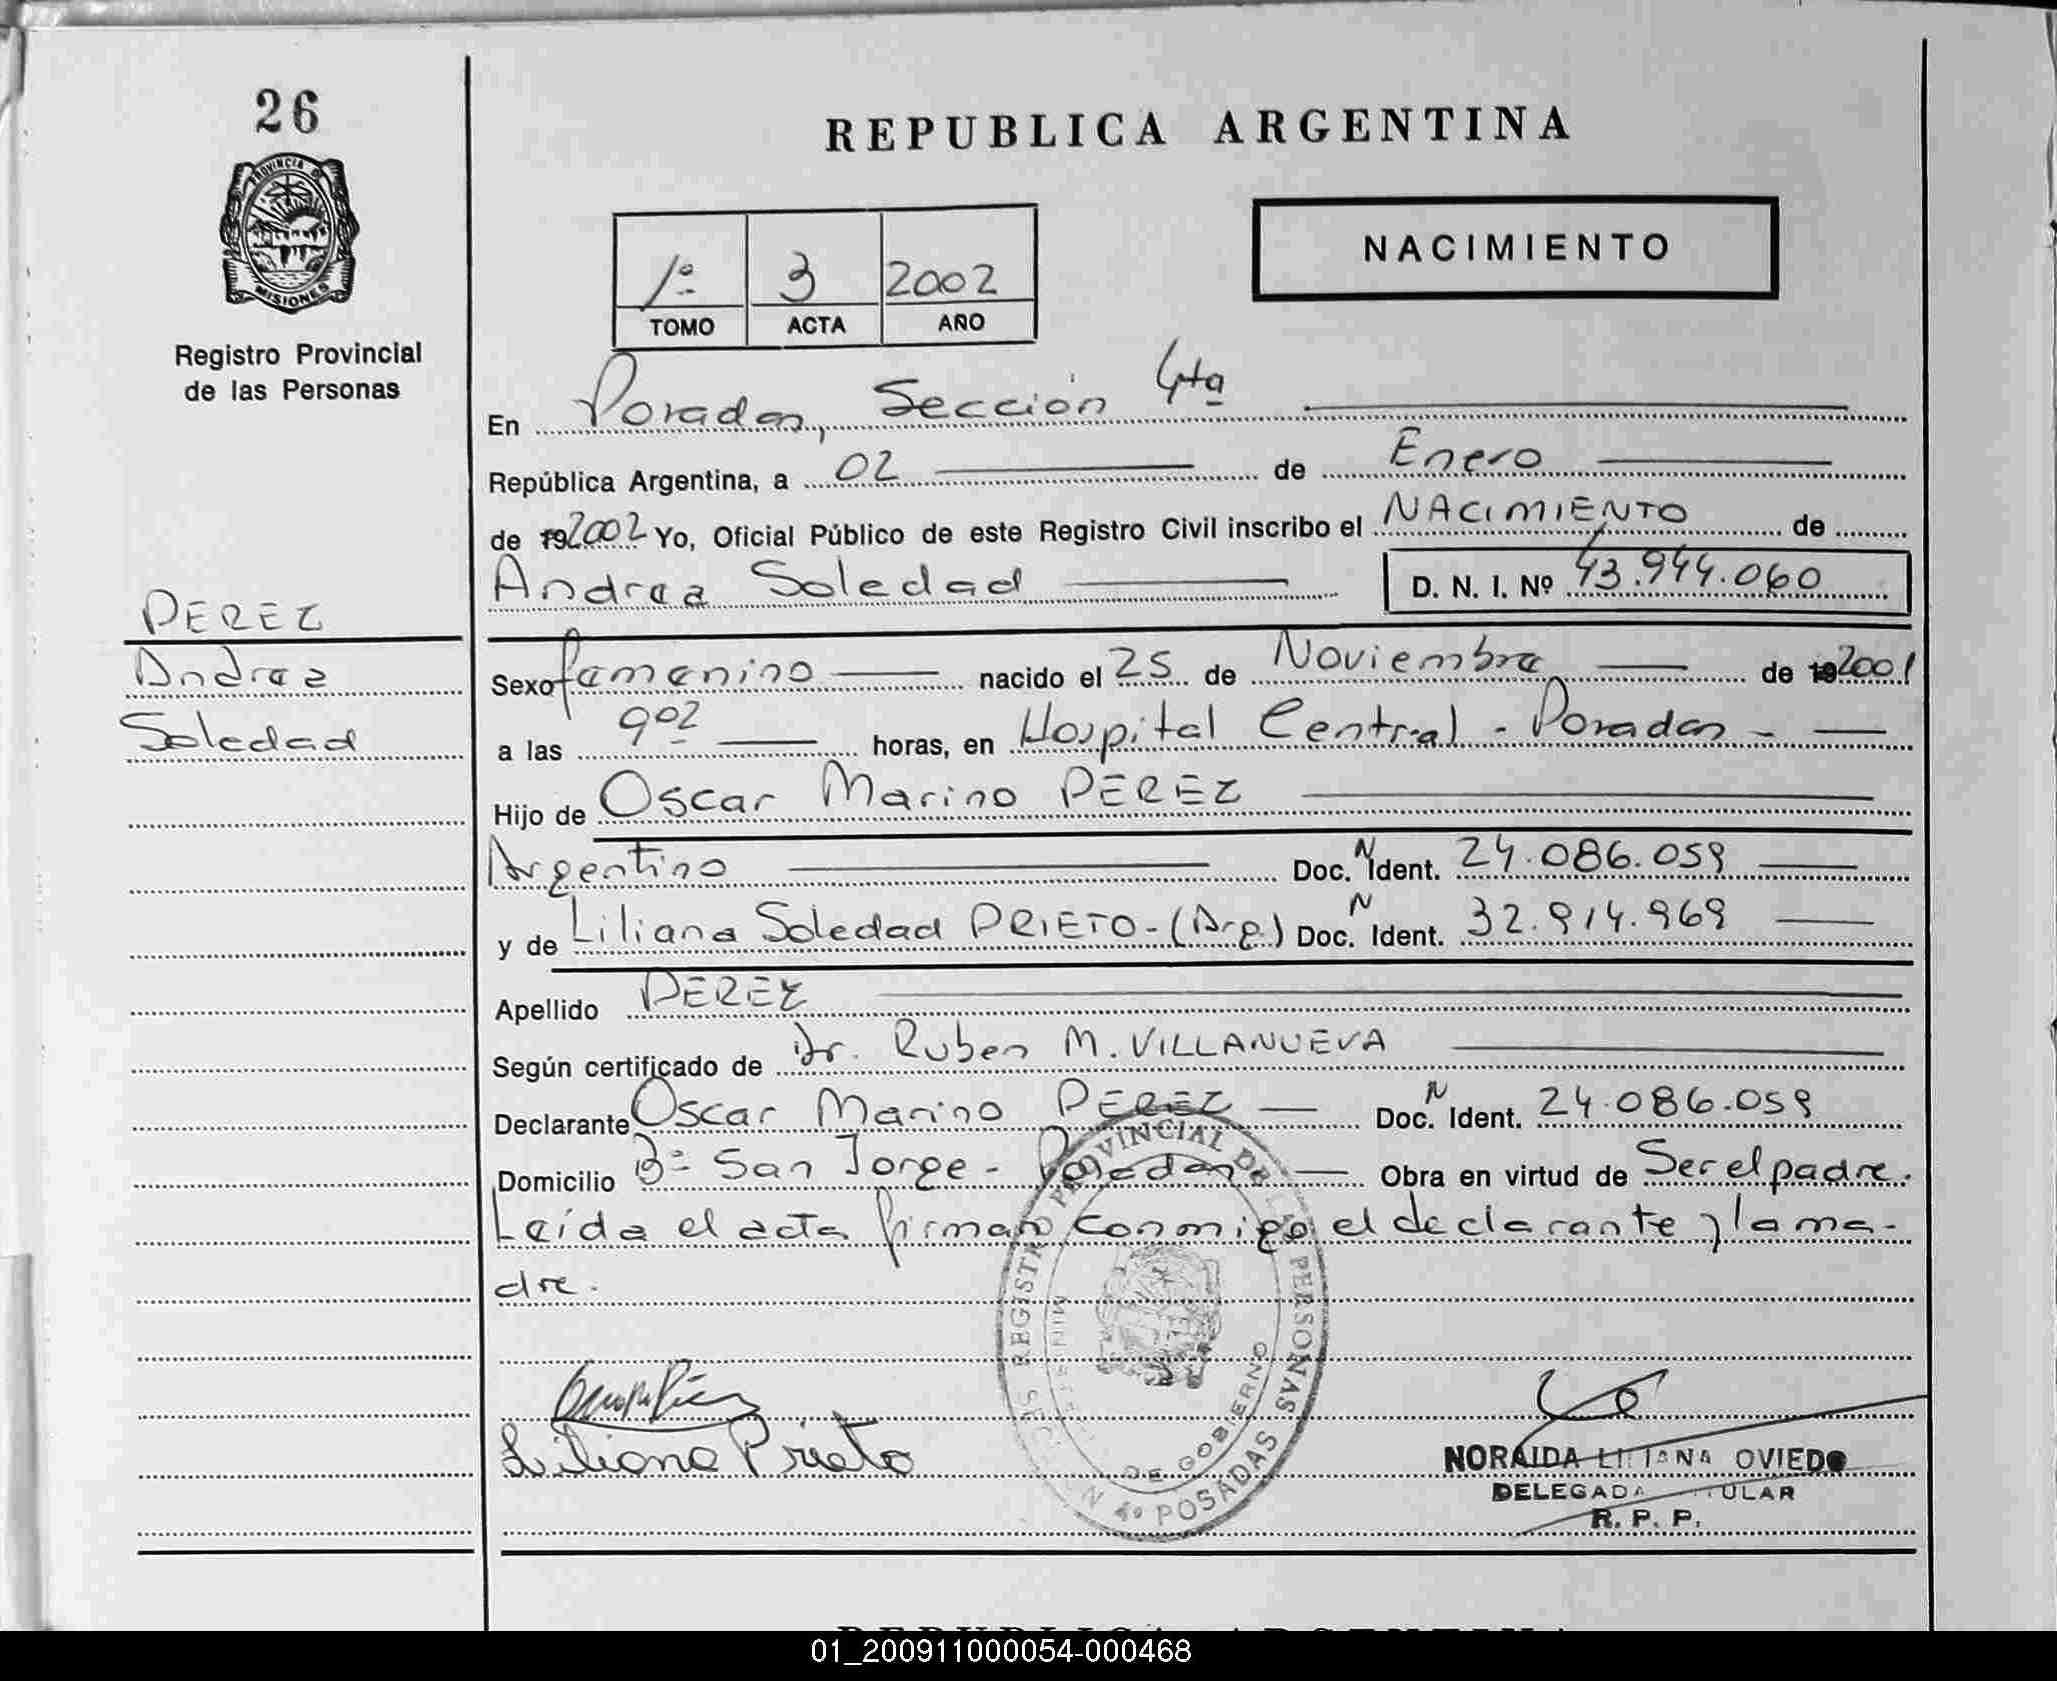 26
PROVINCIA DE
MISIONES
Registro Provincial
de las Personas
PEREZ
Andrea
Soledad
REPUBLICA ARGENTINA
NACIMIENTO
1º 3 2002
TOMO ACTA AÑO
En Posadas, Sección 4ta
República Argentina, a 02 de Enero
de 192002 Yo, Oficial Público de este Registro Civil inscribo el NACIMIENTO de
Andrea Soledad D. N. I. Nº 43.944.060
Sexo femenino nacido el 25 de Noviembre de 192001
a las 902 horas, en Hospital Central - Posadas -
Hijo de Oscar Marino PEREZ
Argentino Doc. N Ident. 24.086.059
y de Liliana Soledad PRIETO - (Arg.) Doc. N Ident. 32.914.969
Apellido PEREZ
Según certificado de Dr. Ruben M. VILLANUEVA
Declarante Oscar Marino PEREZ Doc. N Ident. 24.086.059
Domicilio Bº San Jorge - Posadas Obra en virtud de Ser el padre.
Leída el acta firman conmigo el declarante y la ma-
dre.
REGISTRO PROVINCIAL DE LAS PERSONAS
DE GOBIERNO
4º POSADAS
Liliana Prieto
NORAIDA LILIANA OVIEDO
DELEGADA TITULAR
R. P. P.
REPUBLICA ARGENTINA
01_200911000054-000468